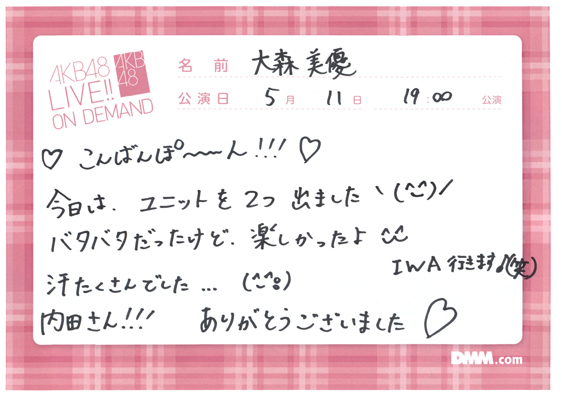 AKB48
LIVE!!
ON DEMAND
AKB
48
名前 大森美優
公演日 5月 11日 19:00 公演
♡ こんばんぽ〜〜ん!!! ♡
今日は、ユニットを2つ出ました ヽ(^^)/
バタバタだったけど、楽しかったよ ^^
IWA行きます♪(笑)
汗たくさんでした... (^^;)
内田さん!!! ありがとうございました ♡
DMM.com